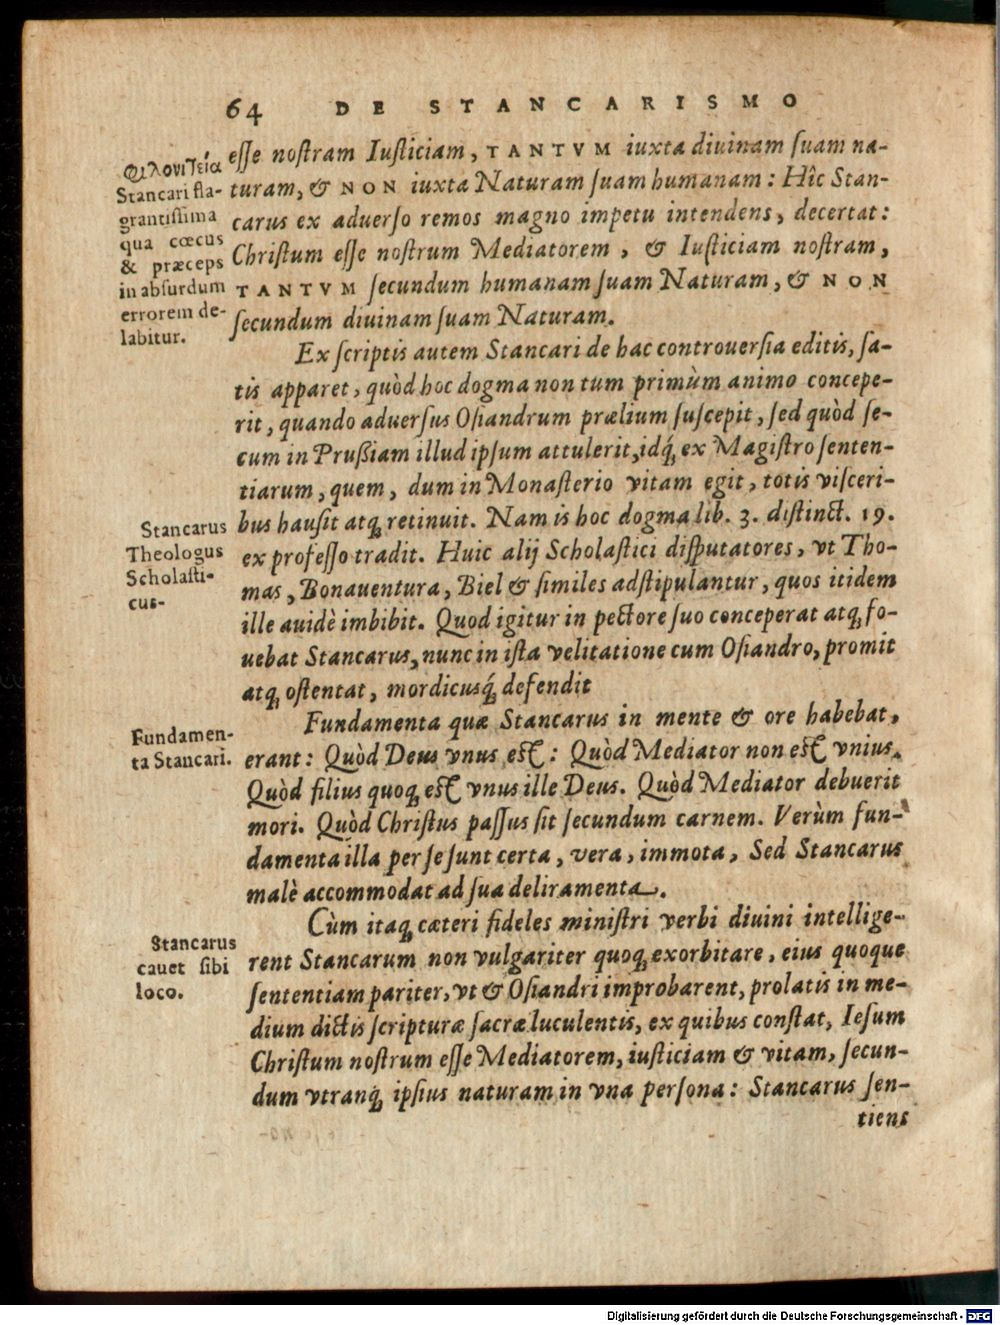 64 DE STANCARISMO
esse nostram Iusticiam, TANTVM iuxta diuinam suam na-
turam, & NON iuxta Naturam suam humanam: Hîc Stan-
carus ex aduerso remos magno impetu intendens, decertat:
Christum esse nostrum Mediatorem, & Iusticiam nostram,
TANTVM secundum humanam suam Naturam, & NON
secundum diuinam suam Naturam.
Φιλονεικία
Stancari fla-
grantissima
qua cœcus
& præceps
in absurdum
errorem de-
labitur.
Ex scriptis autem Stancari de hac controuersia editis, sa-
tis apparet, quòd hoc dogma non tum primùm animo concepe-
rit, quando aduersus Osiandrum prælium suscepit, sed quòd se-
cum in Prußiam illud ipsum attulerit, idq́; ex Magistro senten-
tiarum, quem, dum in Monasterio vitam egit, totis visceri-
bus hausit atq; retinuit. Nam is hoc dogma lib. 3. distinct. 19.
ex professo tradit. Huic alij Scholastici disputatores, vt Tho-
mas, Bonauentura, Biel & similes adstipulantur, quos itidem
ille auidè imbibit. Quod igitur in pectore suo conceperat atq; fo-
uebat Stancarus, nunc in ista velitatione cum Osiandro, promit
atq; ostentat, mordicusq́; defendit
Stancarus
Theologus
Scholasti-
cus-
Fundamenta quæ Stancarus in mente & ore habebat,
erant: Quòd Deus vnus est: Quòd Mediator non est vnius.
Quòd filius quoq; est vnus ille Deus. Quòd Mediator debuerit
mori. Quòd Christus passus sit secundum carnem. Verùm fun-
damenta illa per se sunt certa, vera, immota, Sed Stancarus
malè accommodat ad sua deliramenta.
Fundamen-
ta Stancari.
Cùm itaq; cæteri fideles ministri verbi diuini intellige-
rent Stancarum non vulgariter quoq; exorbitare, eius quoque
sententiam pariter, vt & Osiandri improbarent, prolatis in me-
dium dictis scripturæ sacræ luculentis, ex quibus constat, Iesum
Christum nostrum esse Mediatorem, iusticiam & vitam, secun-
dum vtranq́; ipsius naturam in vna persona: Stancarus sen-
tiens
Stancarus
cauet sibi
loco.
Digitalisierung gefördert durch die Deutsche Forschungsgemeinschaft - DFG